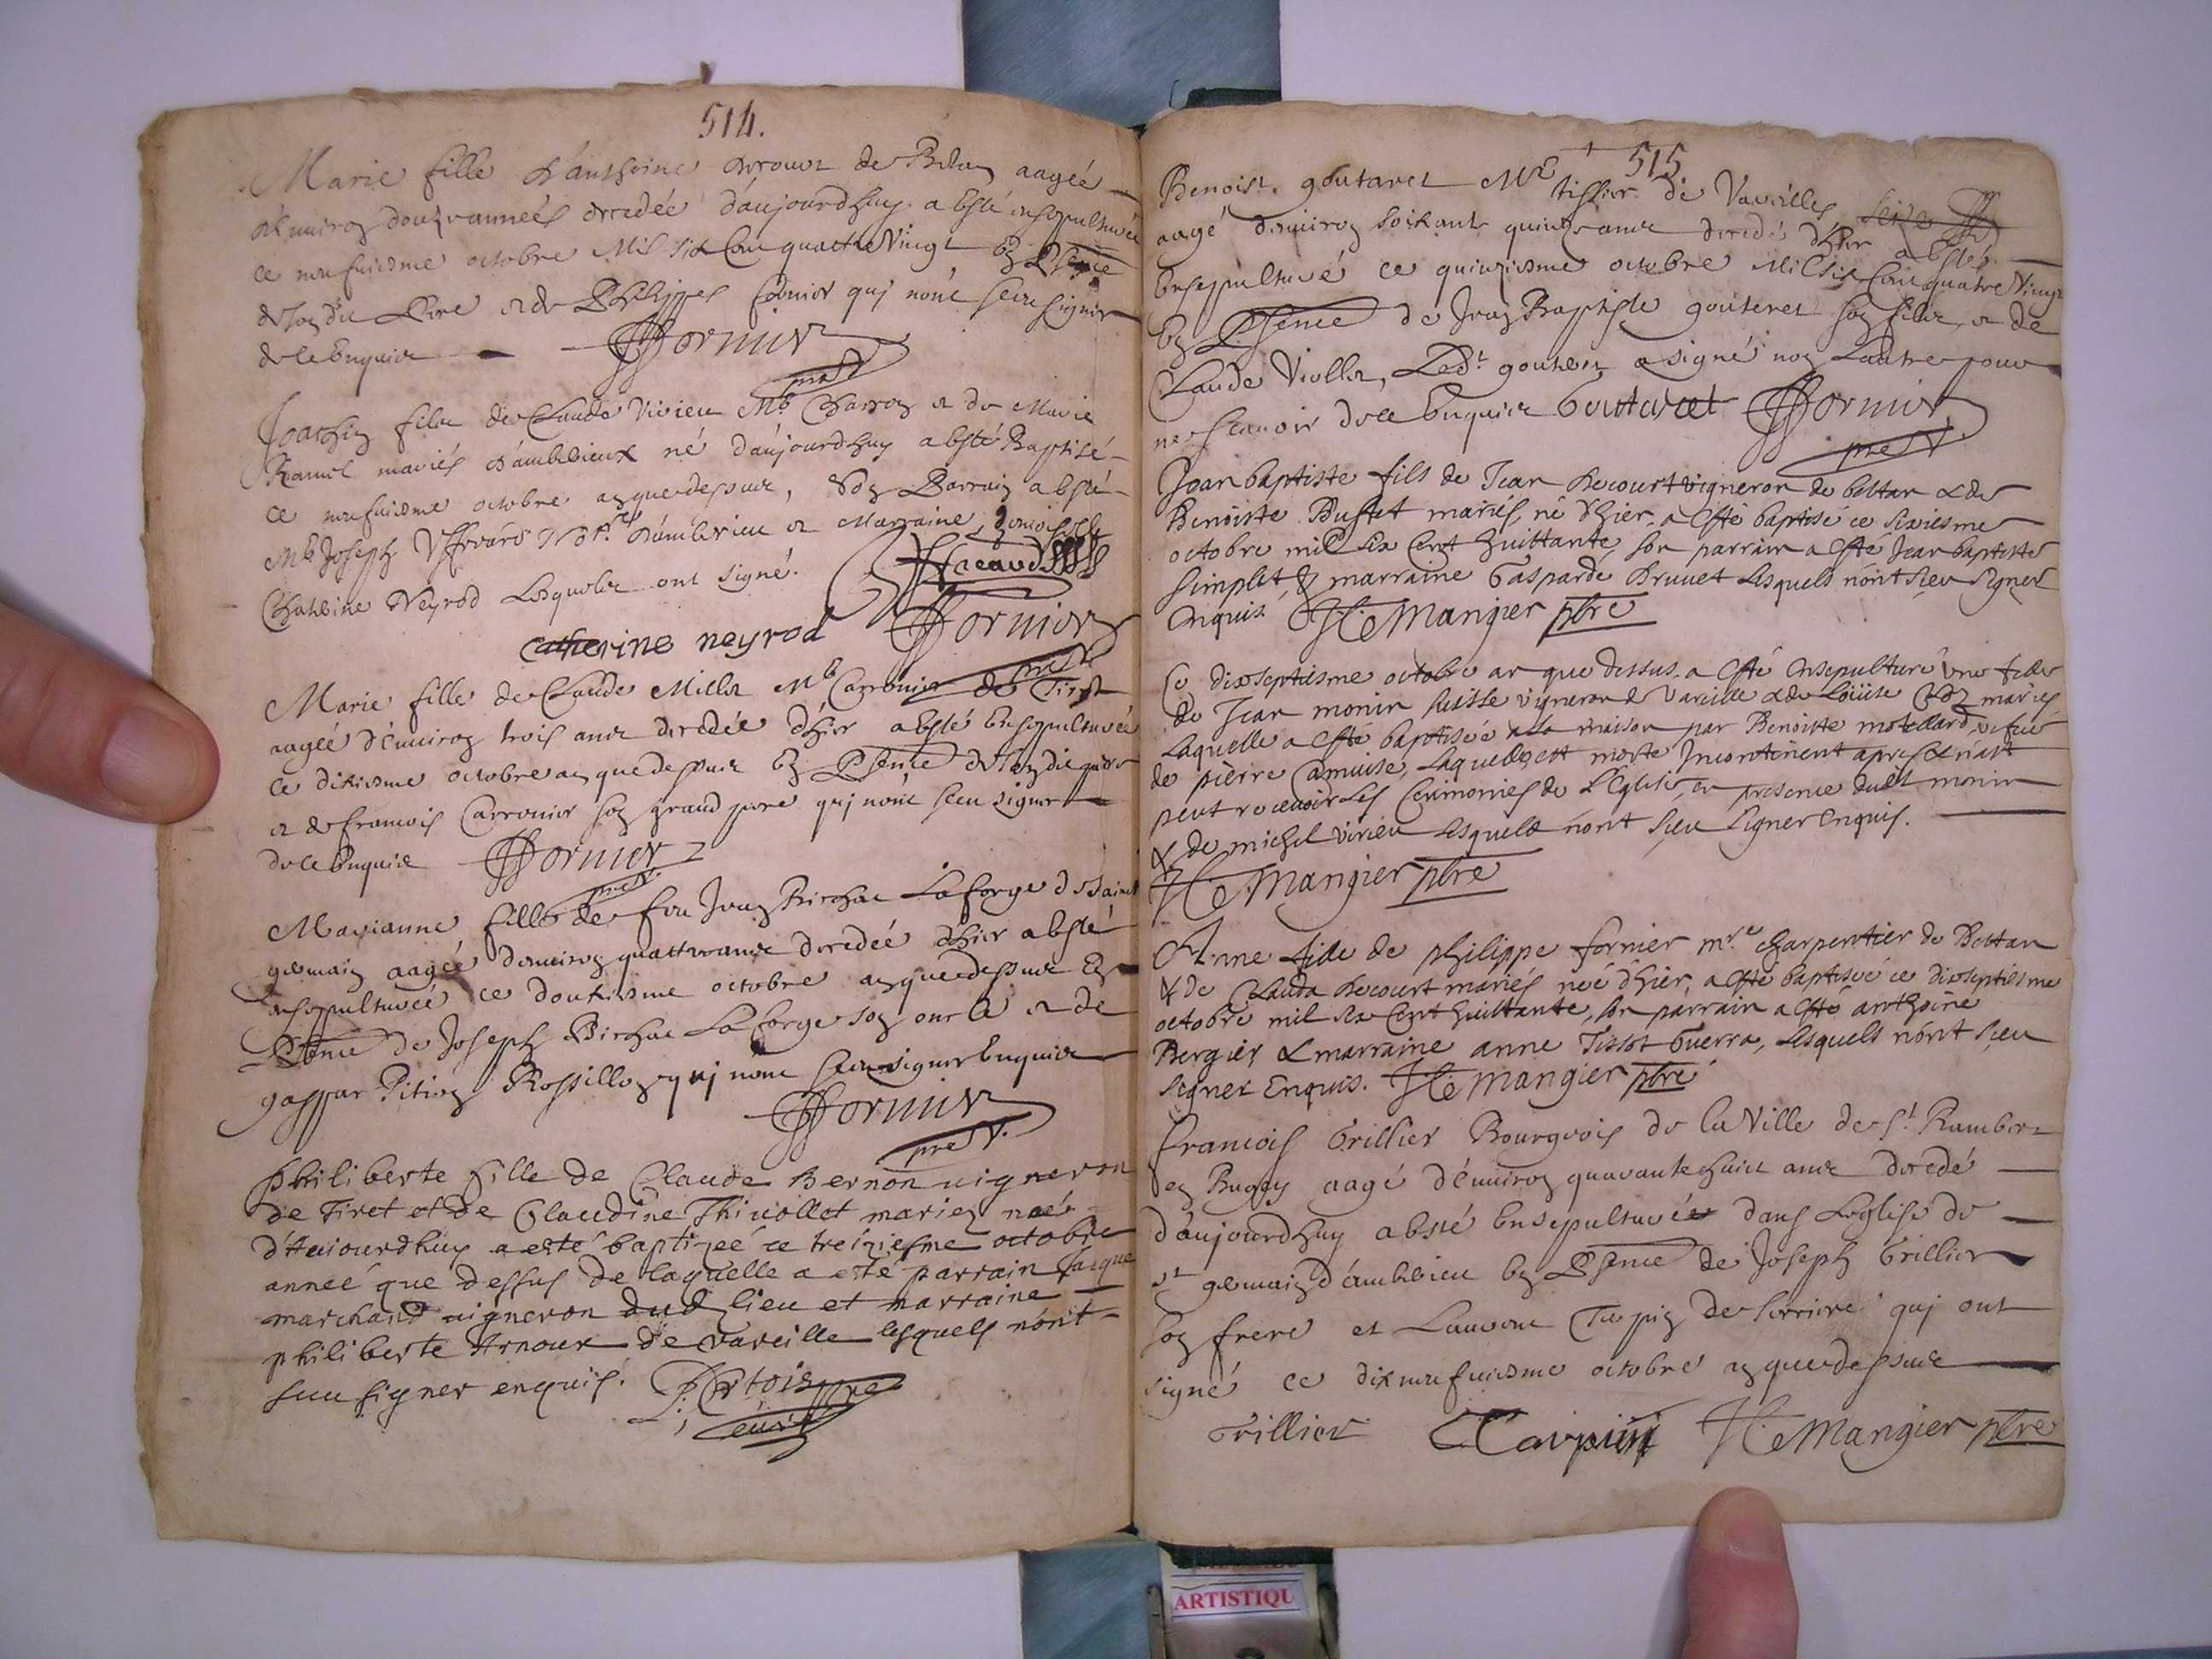 514.
Marie fille d'anthoine de Betan aagée
d'enuiron douze années decedée daujourdhuy a esté ensepulturée
ce neufuiesme octobre Mil six Cent quattre Vingt En Psence
de son dit Pere et de Philippes fornier quj nont sceu signer
de ce Enquis Fornier
prest.
Joachin filz de Claude Vivieu Mre Charron et de Marie
Ramel mariés d'ambérieux né daujourdhuy a esté Baptisé
ce neufuiesme octobre an que dessus, son Parrain a esté
Mre Joseph Not.re d'amberieu et Marraine
Catherine Neyrod Lesquels ont signé.
catherine neyrod Fornier
prest.
Marie fille de Claude Millet Mre de Tiret
aagée d'enuiron trois ans decedée d'hier a esté Ensepulturée
ce dixiesme octobre an que dessus En Psence de son dit pere
et de francois Carronier son grand pere quj nont sceu signer
de ce Enquis Fornier
prest.
Marianne fille de feu Jean La forge de Saint
germain aagée denuiron quattre ans decedée d'hier a esté
ensepulturée ce douziesme octobre an que dessus En
Psence de Joseph La forge son oncle et de
gaspar Pition Rossillon quj nont sceu signer Enquis
Fornier
prest.
Philiberte fille de Claude Bernon uigneron
de Tiret et de Claudine Thiuollet mariez née
d'Auiourdhuy a esté baptizée ce treiziesme octobre
année que dessus de laquelle a esté parrain Jacque
marchand uigneron dud lieu et marraine
philiberte Arnoux de vareille lesquels nont
sceu signer enquis. Portois pre
curé
515
Benoist goutaret Mre tissier de Vareilles
aagé d'enuiron soixante quinze ans decedé d'hier a esté
Ensepulturé ce quinziesme octobre Mil six Cent quatre Vingt
En Psence de Jean Baptiste gouteret son filz, et de
Claude Viollet, Ledt gouteret a signé non Lautre pour
ne scauoir de ce Enquis Goutaret Fornier
prest.
Jean baptiste fils de Jean Decourt vigneron de bettan & de
Benoiste Buffet mariés, né d'hier, a esté baptisé ce sixiesme
octobre mil six Cent huittante, son parrain a esté Jean baptiste
simplet, & marraine Gasparde Brunet Lesquels n'ont sçeu signer
Enquis. He Mangier pbre
Ce dixseptiesme octobre an que dessus. a esté Ensepulturé vne fille
de Jean monin suisse vigneron de Vareille & de Loüise mariés
Laquelle a esté baptisée a La maison par Benoiste vefue
de pierre Camuise, Laquelle est morte Incontinent apres & n'a
peut receuoir Les Cerimonies de L'Eglise, en presence dudt monin
& de michel virieu Lesquels n'ont sçeu signer Enquis.
He Mangier pbre
Anne fille de philippe fornier mre charpentier de Bettan
& de Clauda Decourt mariés née d'hier, a esté baptisée ce dixseptiesme
octobre mil six Cent huittante, son parrain a esté anthoine
Bergier & marraine anne Tissot Guerra, Lesquels n'ont sçeu
signer Enquis. He Mangier pbre
francois Grillier Bourgeois de la Ville de St Rambert
en Bugey aagé d'enuiron quarante huict ans decedé
daujourdhuy a esté Ensepulturée dans Leglise de
st germain d'amberieu En Psence de Joseph Grillier
son frere et Laurent Tarpin de Serriere quj ont
signé ce dixneufuiesme octobre an que dessus
Grillier Tarpin He Mangier pbre
ARTISTIQU